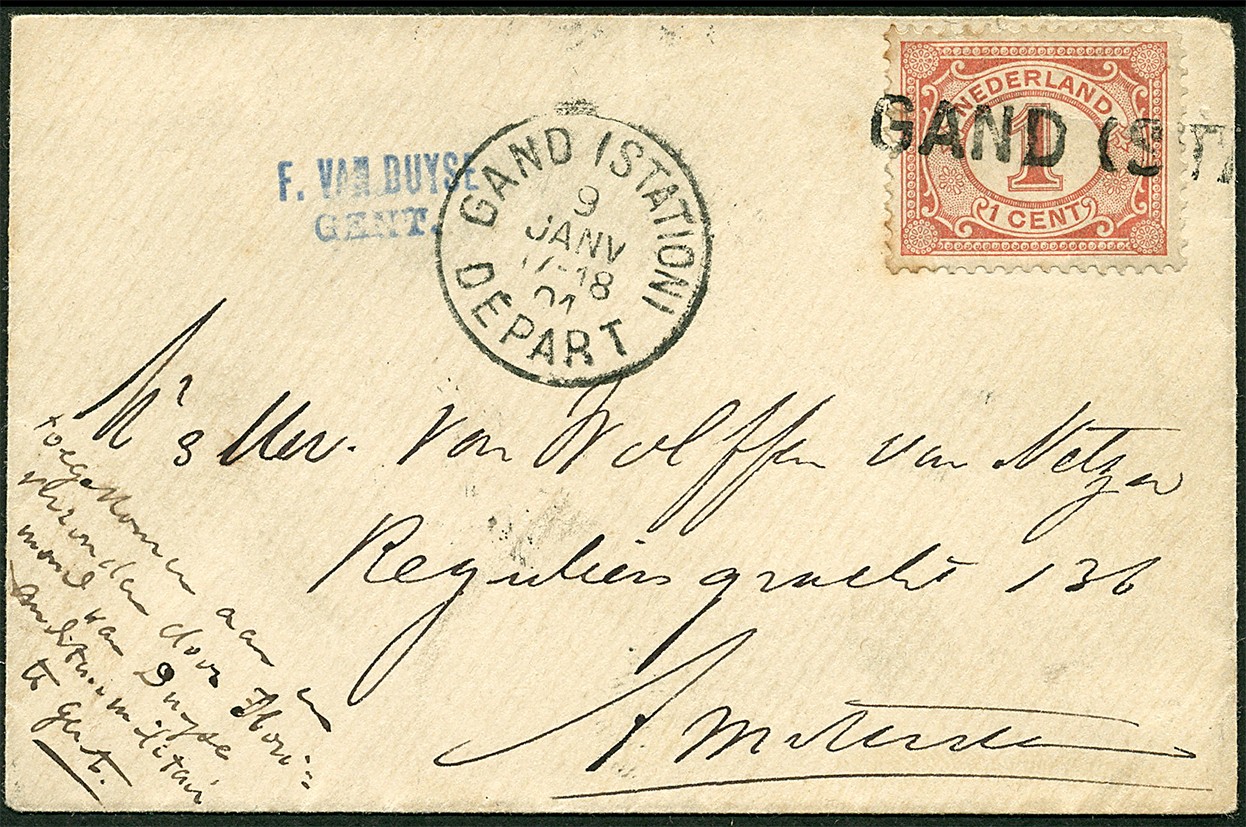 NEDERLAND
1
1 CENT
GAND (ST
F. VAN DUYSE
GENT.
GAND (STATION)
9
JANV
17-18
01
DÉPART
Mr & Mev. van Wolffen van Netza
Reguliersgracht 136
Amsterdam
toegekomen aan en
verzonden door Flori=
mond van Duyse
auditeur militair
te Gent.